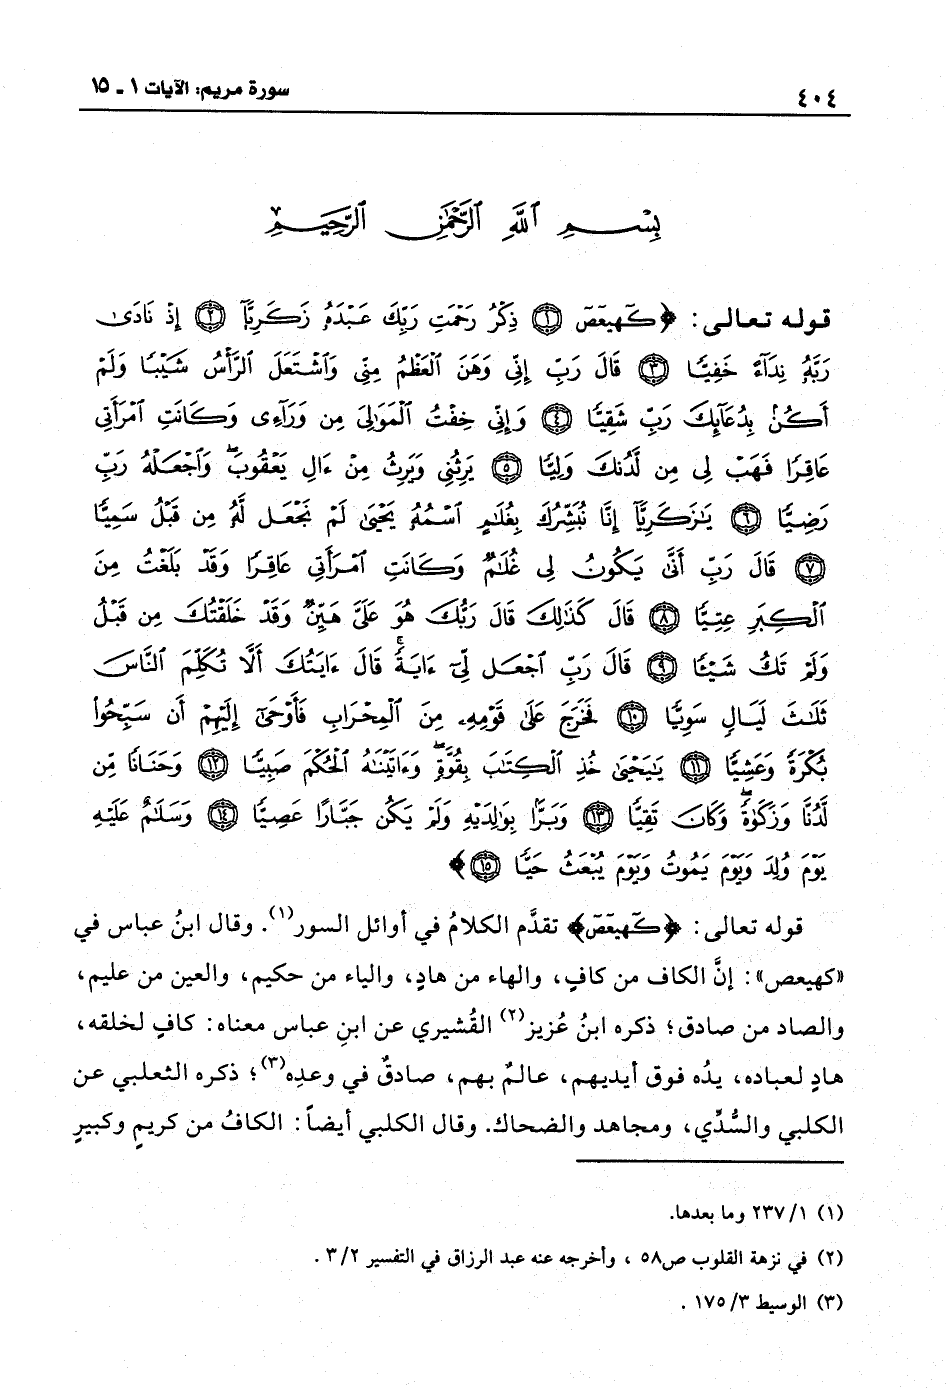 ٤٠٤
سورة مريم: الآيات ١ ـ ١٥
بِسْمِ اللَّهِ الرَّحْمَٰنِ الرَّحِيمِ
قوله تعالى: ﴿كٓهيعٓصٓ ۝١ ذِكْرُ رَحْمَتِ رَبِّكَ عَبْدَهُۥ زَكَرِيَّآ ۝٢ إِذْ نَادَىٰ
رَبَّهُۥ نِدَآءً خَفِيًّا ۝٣ قَالَ رَبِّ إِنِّي وَهَنَ ٱلْعَظْمُ مِنِّي وَٱشْتَعَلَ ٱلرَّأْسُ شَيْبًا وَلَمْ
أَكُنۢ بِدُعَآئِكَ رَبِّ شَقِيًّا ۝٤ وَإِنِّي خِفْتُ ٱلْمَوَٰلِيَ مِن وَرَآءِي وَكَانَتِ ٱمْرَأَتِي
عَاقِرًا فَهَبْ لِي مِن لَّدُنكَ وَلِيًّا ۝٥ يَرِثُنِي وَيَرِثُ مِنْ ءَالِ يَعْقُوبَۖ وَٱجْعَلْهُ رَبِّ
رَضِيًّا ۝٦ يَٰزَكَرِيَّآ إِنَّا نُبَشِّرُكَ بِغُلَٰمٍ ٱسْمُهُۥ يَحْيَىٰ لَمْ نَجْعَل لَّهُۥ مِن قَبْلُ سَمِيًّا
۝٧ قَالَ رَبِّ أَنَّىٰ يَكُونُ لِي غُلَٰمٌ وَكَانَتِ ٱمْرَأَتِي عَاقِرًا وَقَدْ بَلَغْتُ مِنَ
ٱلْكِبَرِ عِتِيًّا ۝٨ قَالَ كَذَٰلِكَ قَالَ رَبُّكَ هُوَ عَلَيَّ هَيِّنٌ وَقَدْ خَلَقْتُكَ مِن قَبْلُ
وَلَمْ تَكُ شَيْـًٔا ۝٩ قَالَ رَبِّ ٱجْعَل لِّيٓ ءَايَةًۚ قَالَ ءَايَتُكَ أَلَّا تُكَلِّمَ ٱلنَّاسَ
ثَلَٰثَ لَيَالٍ سَوِيًّا ۝١٠ فَخَرَجَ عَلَىٰ قَوْمِهِۦ مِنَ ٱلْمِحْرَابِ فَأَوْحَىٰٓ إِلَيْهِمْ أَن سَبِّحُوا۟
بُكْرَةً وَعَشِيًّا ۝١١ يَٰيَحْيَىٰ خُذِ ٱلْكِتَٰبَ بِقُوَّةٍۖ وَءَاتَيْنَٰهُ ٱلْحُكْمَ صَبِيًّا ۝١٢ وَحَنَانًا مِّن
لَّدُنَّا وَزَكَوٰةًۖ وَكَانَ تَقِيًّا ۝١٣ وَبَرًّۢا بِوَٰلِدَيْهِ وَلَمْ يَكُن جَبَّارًا عَصِيًّا ۝١٤ وَسَلَٰمٌ عَلَيْهِ
يَوْمَ وُلِدَ وَيَوْمَ يَمُوتُ وَيَوْمَ يُبْعَثُ حَيًّا ۝١٥﴾
قوله تعالى: ﴿كٓهيعٓصٓ﴾ تقدَّم الكلامُ في أوائل السور(١). وقال ابنُ عباس في
«كهيعص»: إنَّ الكاف من كافٍ، والهاء من هادٍ، والياء من حكيم، والعين من عليم،
والصاد من صادق؛ ذكره ابنُ عُزيز(٢) القُشيري عن ابنِ عباس معناه: كافٍ لخلقه،
هادٍ لعباده، يدُه فوق أيديهم، عالمٌ بهم، صادقٌ في وعدِه(٣)؛ ذكره الثعلبي عن
الكلبي والسُّدِّي، ومجاهد والضحاك. وقال الكلبي أيضاً: الكافُ من كريمٍ وكبيرٍ
(١) ١/ ٢٣٧ وما بعدها.
(٢) في نزهة القلوب ص٥٨ ، وأخرجه عنه عبد الرزاق في التفسير ٢/ ٣ .
(٣) الوسيط ٣/ ١٧٥ .